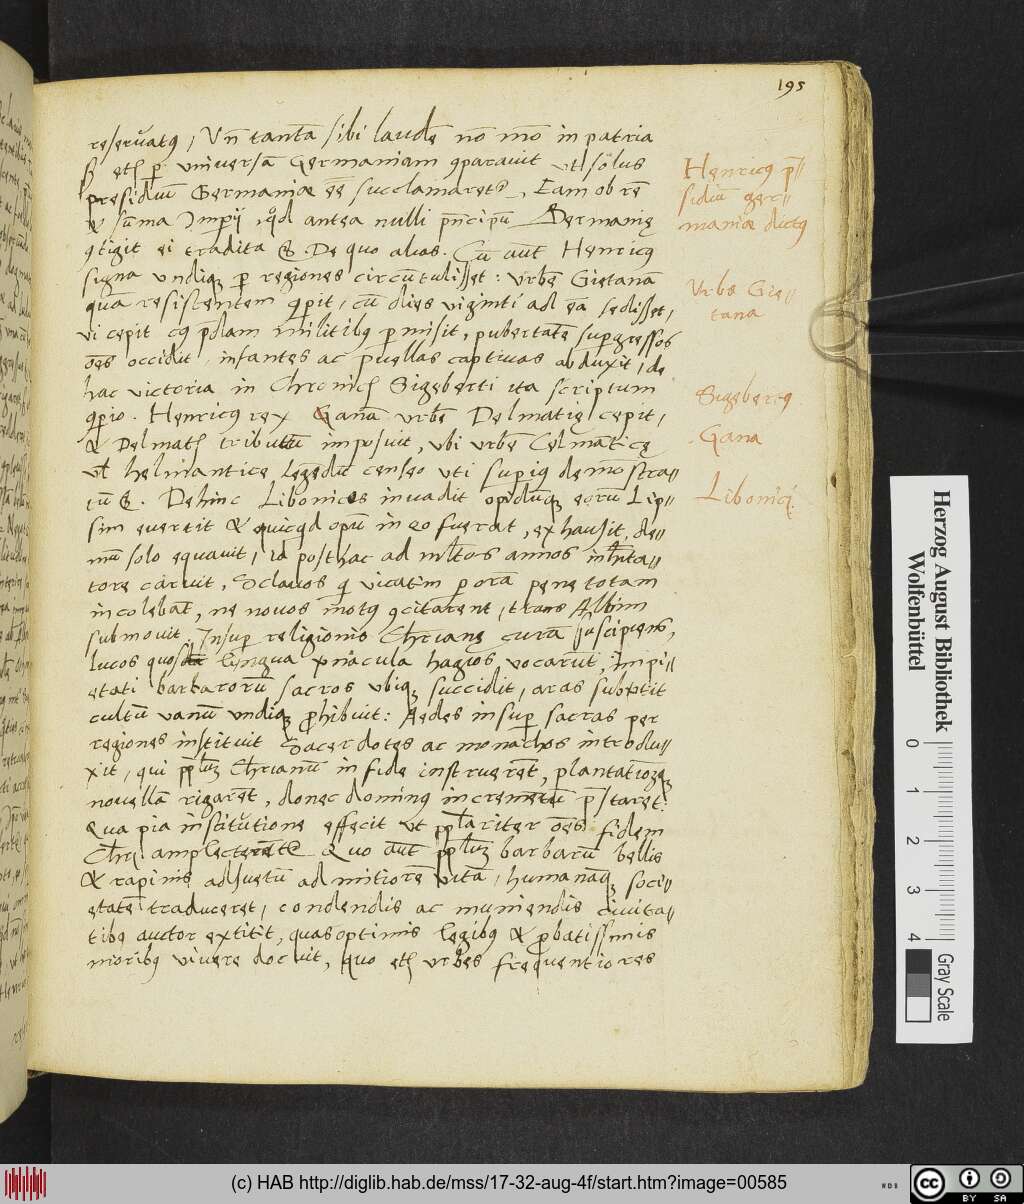 195
reseruatꝰ, Vn̄ tantā sibi laudē nō mō in patria
sꝫ etꝫ ꝑ vniuersā Germaniam ꝯparauit vt solus
presidiū Germaniæ eē succlamaretᷣ, Eam ob rē
& sūma Imperij, qđ antea nulli pn̄cipū Germanię
ꝯtigit ei tradita ē. De quo alias. Cū aūt Henricꝰ
signa vndiqꝫ ꝑ regiones circūtulisset: vrbē Gietanā
quā resistentem reꝑit, cū dies viginti ad eā sedisset,
vi cepit eiꝰ p̄dam militibꝰ ꝑmisit, pubertatē supgressos
oēs occidit, infantes ac puellas captiuas abduxit, de
hac victoria in Chronicꝭ Sigeberti ita scriptum
reꝑio. Henricꝰ rex Ganā vrbē Delmatię cepit,
& Delmatꝭ tributū imposuit, vbi vrbē Celmaticę
vl̄ helmanticę legedū censeo vti supiꝰ demōstra⸗
tū ē. Dehinc Libonicos inuadit opidūqꝫ eorū Lip⸗
sim euertit & quicqđ opū in eo fuerat, exhausit, de⸗
mū solo equauit, id posthac ad ml̄tos annos inhīta⸗
tore caruit, Sclauos qͥ vicatim ꝑ oram pene totam
incolebāt, ne nouos motꝰ ꝯcitarent, trans Albim
submouit, Insuꝑ religionis Chr̄ianę curā suscipiens,
lucos quos lingua vernacula hagios vocarūt, impi⸗
etati barbarorū sacros vbiqꝫ succidit, aras subvertit
cultū vanū vndiqꝫ ꝓhibuit: Aedes insuꝑ sacras per
regiones instituit Sacerdotes ac monachos introdu⸗
xit, qui pplūꝫ Chr̄ianū in fide instruerēt, plantationēqꝫ
nouellā rigarēt, donec dominꝰ incremētū p̄staret:
Qua pia institutione effecit vt ppl̄ariter oēs fidem
Chr̄i amplecterētᷣ Quo aūt pplūꝫ barbarū bellis
& rapinis adsuetū ad mitiorē vitā, humanāqꝫ soci⸗
etatē traduceret, condendis ac muniendis ciuita⸗
tibꝰ auctor extitit, quas optimis legibꝰ & ꝓbatissimis
moribꝰ viuere docuit, quo etꝫ vrbes frequentiores
Henricꝰ p̄⸗
sidiū ger⸗
maniæ dictꝰ
Vrbs Gie⸗
tana
Sigebertꝰ
Gana
Libonici.
Herzog August Bibliothek
Wolfenbüttel
0 1 2 3 4
Gray Scale
(c) HAB http://diglib.hab.de/mss/17-32-aug-4f/start.htm?image=00585
cc BY SA